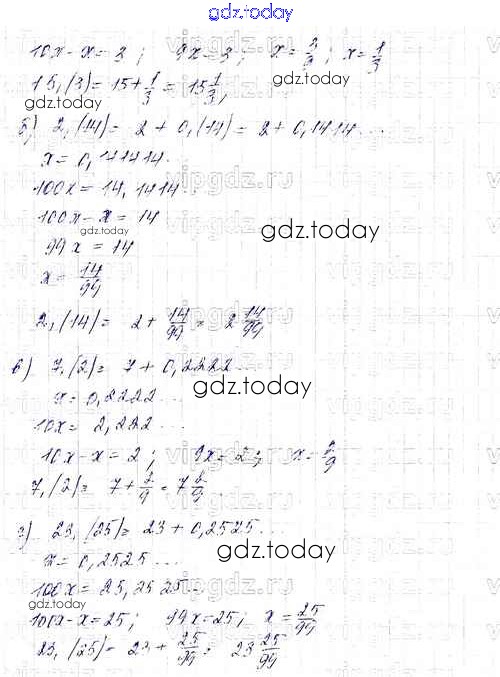 gdz.today
10x - x = 3; 9x = 3; x = 3/9; x = 1/3
15,(3) = 15 + 1/3 = 15 1/3;
gdz.today
б) 2,(14) = 2 + 0,(14) = 2 + 0,1414...
x = 0,141414.
vipgdz.ru
100x = 14,1414...
100x - x = 14
gdz.today
gdz.today
99x = 14
x = 14/99
2,(14) = 2 + 14/99 = 2 14/99
vipgdz.ru
в) 7,(2) = 7 + 0,2222...
x = 0,2222...
gdz.today
10x = 2,222...
10x - x = 2; 9x = 2; x = 2/9
vipgdz.ru
7,(2) = 7 + 2/9 = 7 2/9
г) 23,(25) = 23 + 0,2525...
x = 0,2525...
gdz.today
100x = 25,2525...
vipgdz.ru
100x - x = 25; 99x = 25; x = 25/99
23,(25) = 23 + 25/99 = 23 25/99
gdz.today